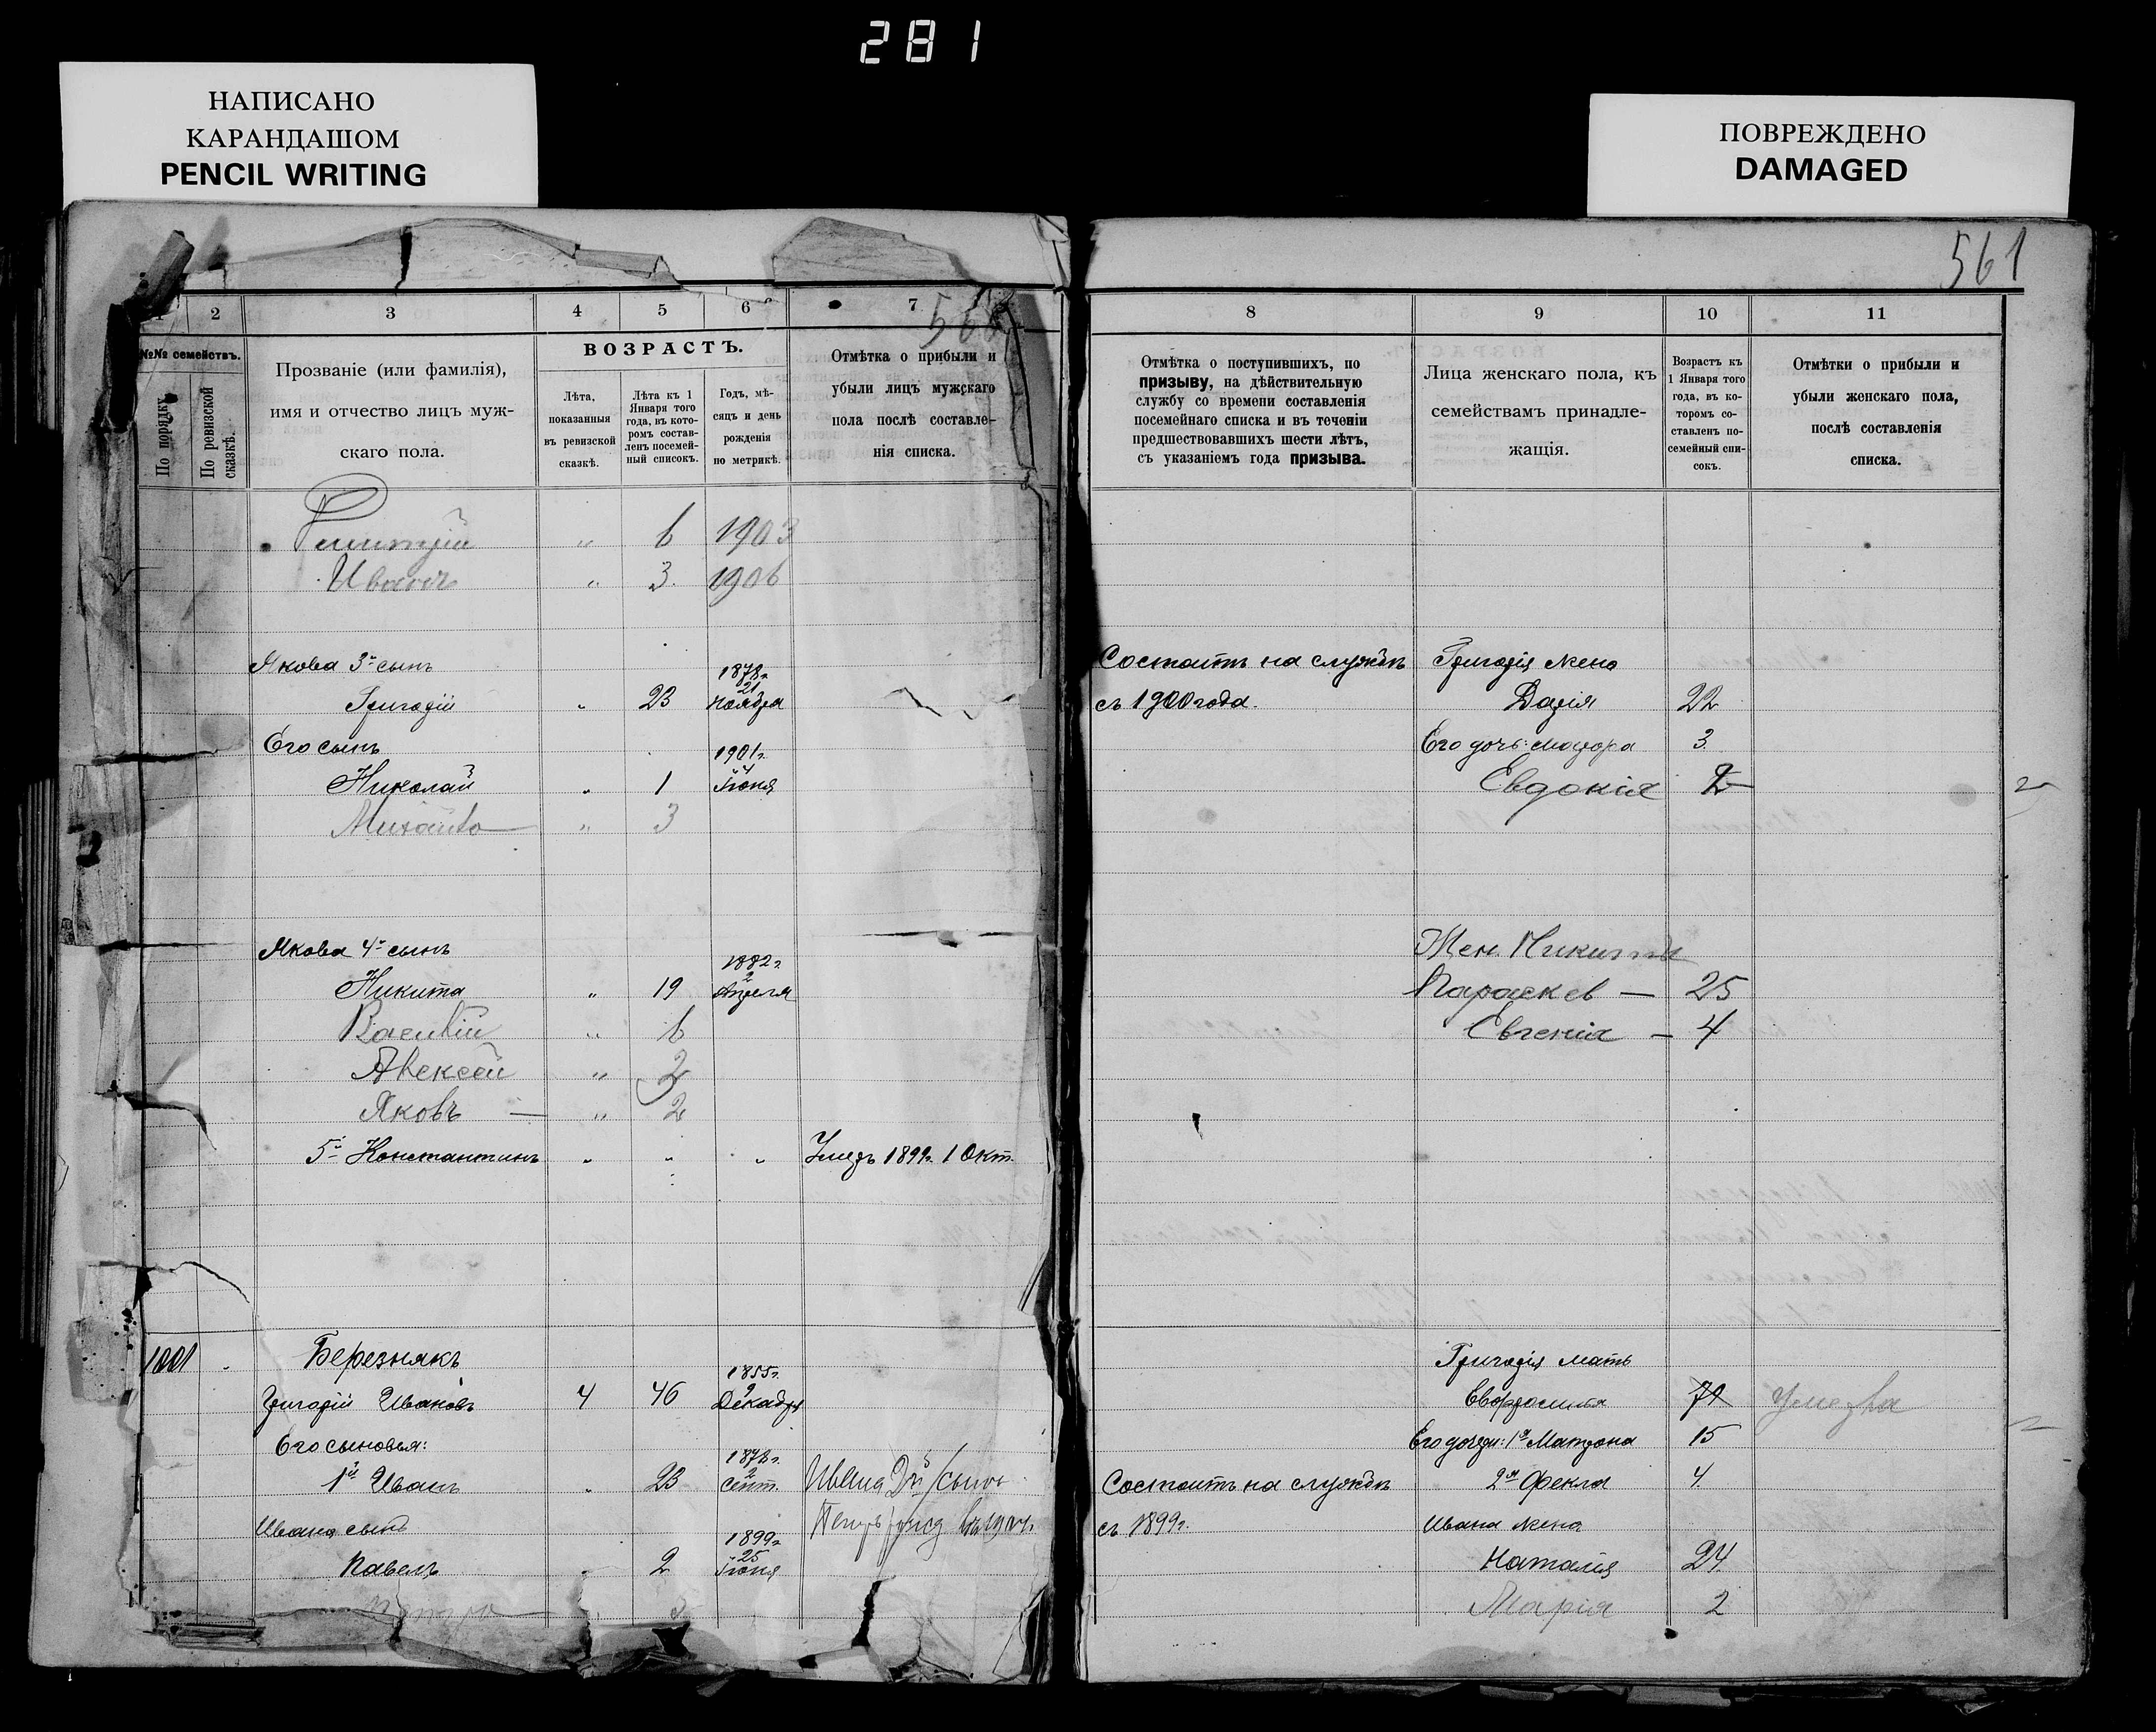 281
НАПИСАНО
КАРАНДАШОМ
PENCIL WRITING
ПОВРЕЖДЕНО
DAMAGED
561
1 2 3 4 5 6 7
№№ семействъ.
По порядку.
По ревизской сказкѣ.
Прозваніе (или фамилія),
имя и отчество лицъ муж-
скаго пола.
ВОЗРАСТЪ.
Лѣта,
показанныя
въ ревизской
сказкѣ.
Лѣта къ 1
Января того
года, въ кото-
ромъ состав-
ленъ посемей-
ный списокъ.
Годъ, мѣ-
сяцъ и день
рожденія
по метрикѣ.
Отмѣтка о прибыли и
убыли лицъ мужскаго
пола послѣ составле-
нія списка.
6 1903
Иванъ " 3. 1906
Якова 3й сынъ 1878г.
Григорій " 23 21 ноября
Его сынъ 1901г.
Николай " 1 4 Іюня
Михаило " 3
Якова 4й сынъ 1882г.
Никита " 19 2 Апреля
Василій " 6
Алексѣй "
Яковъ — " 2
5й Константинъ " " " Умеръ 1899г. 1 Окт.
1001 Березнякъ 1855г.
Григорій Ивановъ 4 46 9 Декабря
Его сыновья: 1878г.
1й Иванъ " 23 2 Сент. Ивана 2й сынъ
Ивана сынъ Петръ 1899г.
Павелъ " 2 25 Іюня
Петро
8 9 10 11
Отмѣтка о поступившихъ, по
призыву, на дѣйствительную
службу со времени составленія
посемейнаго списка и въ теченіи
предшествовавшихъ шести лѣтъ,
съ указаніемъ года призыва.
Лица женскаго пола, къ
семействамъ принадле-
жащія.
Возрастъ къ
1 Января того
года, въ ко-
торомъ со-
ставленъ по-
семейный спи-
сокъ.
Отмѣтки о прибыли и
убыли женскаго пола,
послѣ составленія
списка.
Состоитъ на службѣ Григорія жена
съ 1900 года. Дарія 22
Его дочь: Модора 3.
Евдокія 2
Жен. Никиты
Параскев — 25
Евгенія — 4
Григорія мать
Евфросинія 71 Умерла
Его дочери: 1я Матрона 15
Состоитъ на службѣ 2я Фекла 4.
съ 1899г. Ивана жена
Наталія 24.
Марія 2